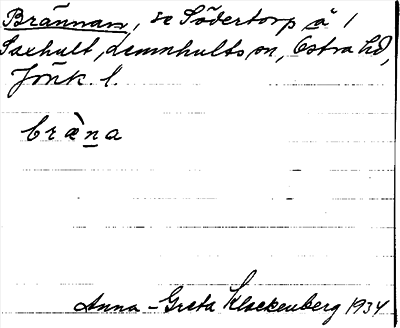 Brännan, se Södertorp å 1
Saxhult, Lemnhults sn, Östra hd,
Jönk. l.
bràna
Anna-Greta Klockenberg 1934